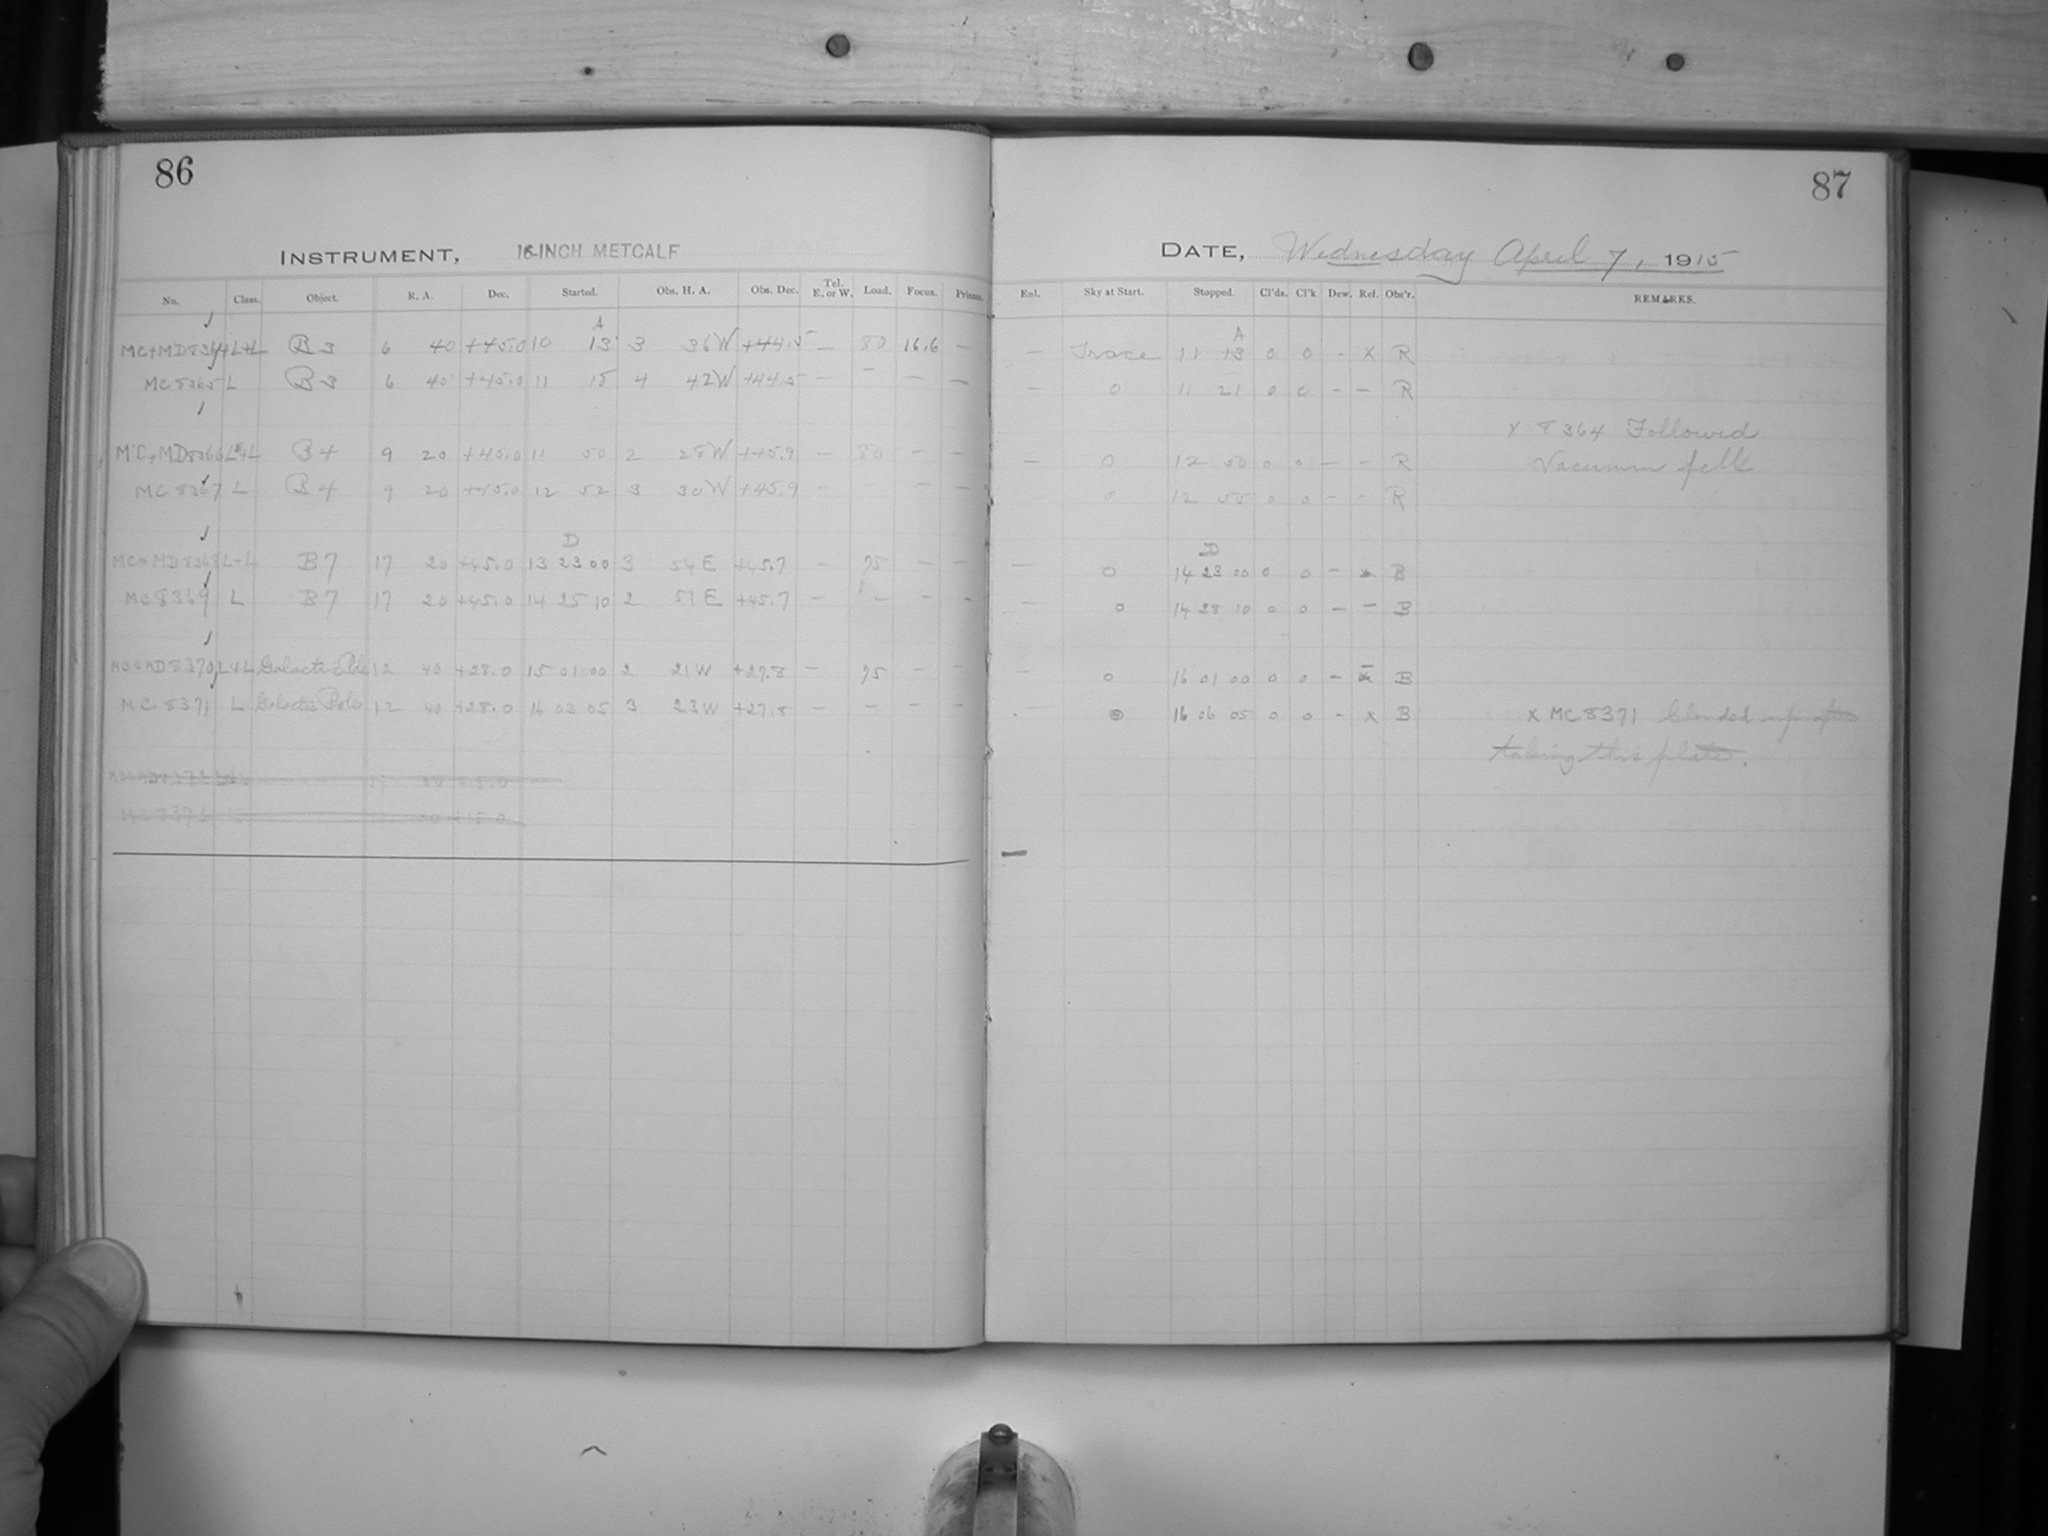 86
INSTRUMENT, 16-INCH METCALF
No. Class. Object. R. A. Dec. Started. Obs. H. A. Obs. Dec. Tel. E. or W. Load. Focus. Prisms.
A
MC+MD8364 L+L B3 6 40 +45.0 10 13 3 36W +44.5 — 80 16.6 —
MC 8365 L B3 6 40 +45.0 11 15 4 42W +44.5 — — — —
MC+MD8366 L+L B4 9 20 +45.0 11 50 2 28W +45.9 — 80 — —
MC 8367 L B4 9 20 +45.0 12 52 3 30W +45.9 — — — —
D
MC+MD8368 L+L B7 17 20 +45.0 13 23 00 3 54E +45.7 — 75 — —
MC8369 L B7 17 20 +45.0 14 25 10 2 51E +45.7 — — — -
MC+MD8370 L+L Galactic Pole 12 40 +28.0 15 01 00 2 21W +27.8 — 75 — —
MC 8371 L Galactic Pole 12 40 +28.0 16 03 05 3 23W +27.8 — — — —
MC 8373
87
DATE, Wednesday April 7, 1915
Enl. Sky at Start. Stopped. Cl'ds. Cl'k Dew. Ref. Obs'r. REMARKS.
A
— Trace 11 13 0 0 - X R
— 0 11 21 0 0 - — R
X 8364 Followed
— 0 12 50 0 0 — - R Vacuum fell
0 12 55 0 0 - - R
D
— 0 14 23 00 0 0 - B
— 0 14 28 10 0 0 — — B
— 0 16 01 00 0 0 — — B
— 16 06 05 0 0 - X B X MC8371 Clouded up after
taking this plate.